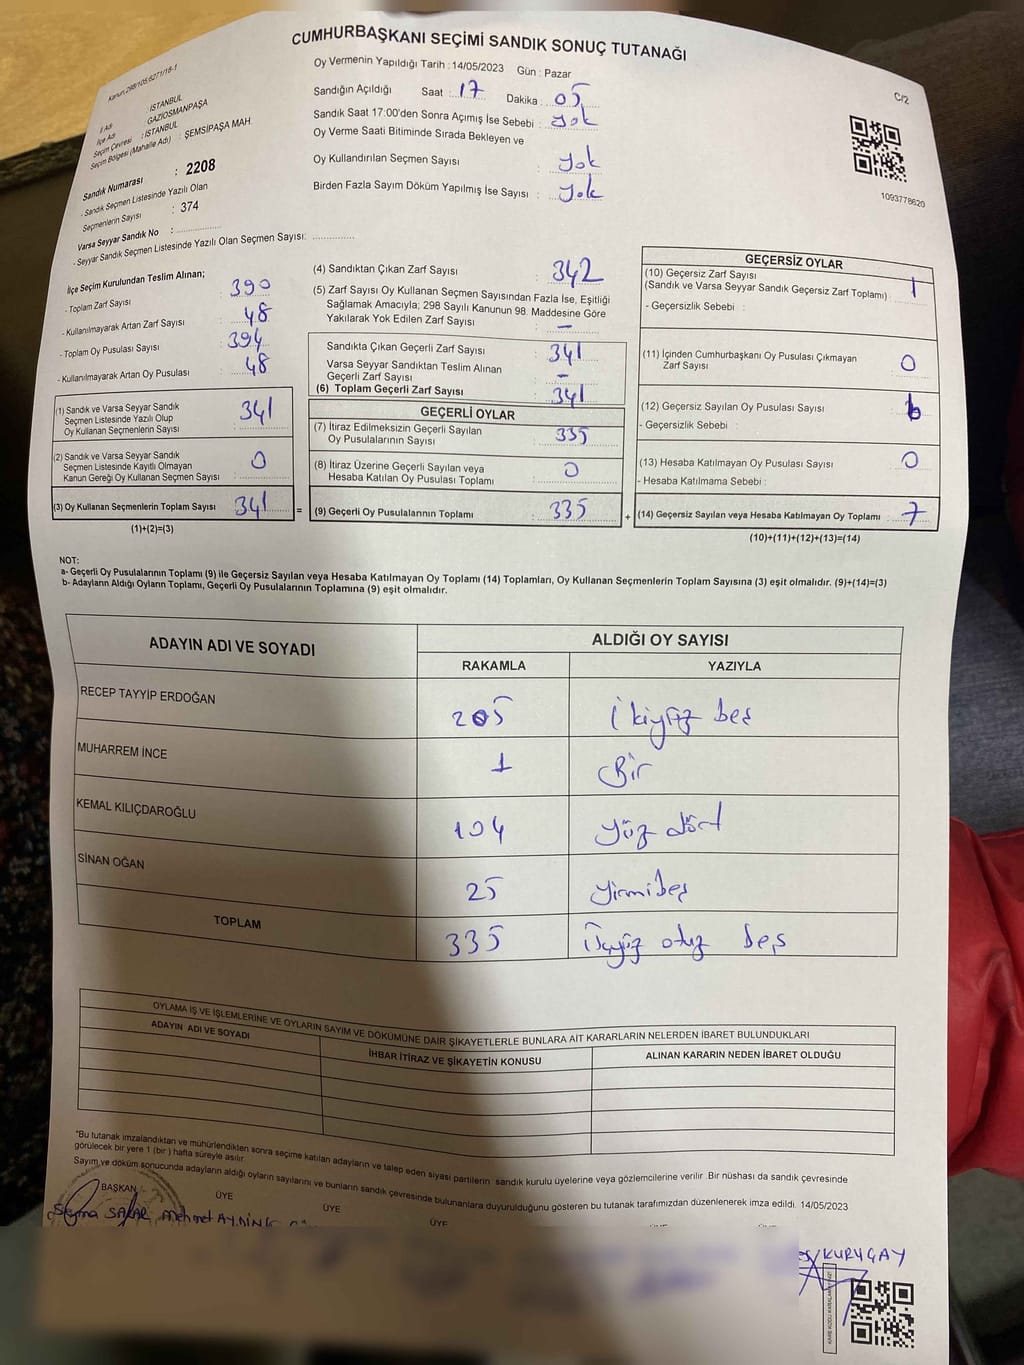 CUMHURBAŞKANI SEÇİMİ SANDIK SONUÇ TUTANAĞI
Kanun:298/105,6271/18-1
C/2
Oy Vermenin Yapıldığı Tarih : 14/05/2023 Gün : Pazar
Sandığın Açıldığı Saat : 17 Dakika : 05
Sandık Saat 17:00'den Sonra Açılmış İse Sebebi : yok
Oy Verme Saati Bitiminde Sırada Bekleyen ve
Oy Kullandırılan Seçmen Sayısı : yok
Birden Fazla Sayım Döküm Yapılmış İse Sayısı : yok
1093778620
İl Adı : İSTANBUL
İlçe Adı : GAZİOSMANPAŞA
Seçim Çevresi : İSTANBUL
Seçim Bölgesi (Mahalle Adı) : ŞEMSİPAŞA MAH.
Sandık Numarası : 2208
- Sandık Seçmen Listesinde Yazılı Olan
Seçmenlerin Sayısı : 374
Varsa Seyyar Sandık No :
- Seyyar Sandık Seçmen Listesinde Yazılı Olan Seçmen Sayısı:
İlçe Seçim Kurulundan Teslim Alınan;
- Toplam Zarf Sayısı 390
- Kullanılmayarak Artan Zarf Sayısı 48
- Toplam Oy Pusulası Sayısı 394
- Kullanılmayarak Artan Oy Pusulası 48
(1) Sandık ve Varsa Seyyar Sandık
Seçmen Listesinde Yazılı Olup
Oy Kullanan Seçmenlerin Sayısı 341
(2) Sandık ve Varsa Seyyar Sandık
Seçmen Listesinde Kayıtlı Olmayan
Kanun Gereği Oy Kullanan Seçmen Sayısı 0
(3) Oy Kullanan Seçmenlerin Toplam Sayısı 341
(1)+(2)=(3)
=
(4) Sandıktan Çıkan Zarf Sayısı : 342
(5) Zarf Sayısı Oy Kullanan Seçmen Sayısından Fazla İse, Eşitliği
Sağlamak Amacıyla; 298 Sayılı Kanunun 98. Maddesine Göre
Yakılarak Yok Edilen Zarf Sayısı : –
Sandıkta Çıkan Geçerli Zarf Sayısı : 341
Varsa Seyyar Sandıktan Teslim Alınan
Geçerli Zarf Sayısı : –
(6) Toplam Geçerli Zarf Sayısı : 341
GEÇERLİ OYLAR
(7) İtiraz Edilmeksizin Geçerli Sayılan
Oy Pusulalarının Sayısı : 335
(8) İtiraz Üzerine Geçerli Sayılan veya
Hesaba Katılan Oy Pusulası Toplamı : 0
(9) Geçerli Oy Pusulalarının Toplamı : 335
+
GEÇERSİZ OYLAR
(10) Geçersiz Zarf Sayısı
(Sandık ve Varsa Seyyar Sandık Geçersiz Zarf Toplamı) : 1
- Geçersizlik Sebebi :
(11) İçinden Cumhurbaşkanı Oy Pusulası Çıkmayan
Zarf Sayısı : 0
(12) Geçersiz Sayılan Oy Pusulası Sayısı : 6
- Geçersizlik Sebebi :
(13) Hesaba Katılmayan Oy Pusulası Sayısı : 0
- Hesaba Katılmama Sebebi :
(14) Geçersiz Sayılan veya Hesaba Katılmayan Oy Toplamı : 7
(10)+(11)+(12)+(13)=(14)
NOT:
a- Geçerli Oy Pusulalarının Toplamı (9) ile Geçersiz Sayılan veya Hesaba Katılmayan Oy Toplamı (14) Toplamları, Oy Kullanan Seçmenlerin Toplam Sayısına (3) eşit olmalıdır. (9)+(14)=(3)
b- Adayların Aldığı Oyların Toplamı, Geçerli Oy Pusulalarının Toplamına (9) eşit olmalıdır.
ADAYIN ADI VE SOYADI ALDIĞI OY SAYISI
RAKAMLA YAZIYLA
RECEP TAYYİP ERDOĞAN 205 ikiyüz beş
MUHARREM İNCE 1 Bir
KEMAL KILIÇDAROĞLU 104 yüz dört
SİNAN OĞAN 25 yirmibeş
TOPLAM 335 üçyüz otuz beş
OYLAMA İŞ VE İŞLEMLERİNE VE OYLARIN SAYIM VE DÖKÜMÜNE DAİR ŞİKAYETLERLE BUNLARA AİT KARARLARIN NELERDEN İBARET BULUNDUKLARI
ADAYIN ADI VE SOYADI İHBAR İTİRAZ VE ŞİKAYETİN KONUSU ALINAN KARARIN NEDEN İBARET OLDUĞU
"Bu tutanak imzalandıktan ve mühürlendikten sonra seçime katılan adayların ve talep eden siyasi partilerin sandık kurulu üyelerine veya gözlemcilerine verilir. Bir nüshası da sandık çevresinde
görülecek bir yere 1 (bir ) hafta süreyle asılır.
Sayım ve döküm sonucunda adayların aldığı oyların sayılarını ve bunların sandık çevresinde bulunanlara duyurulduğunu gösteren bu tutanak tarafımızdan düzenlenerek imza edildi. 14/05/2023
BAŞKAN ÜYE ÜYE ÜYE
KURUÇAY